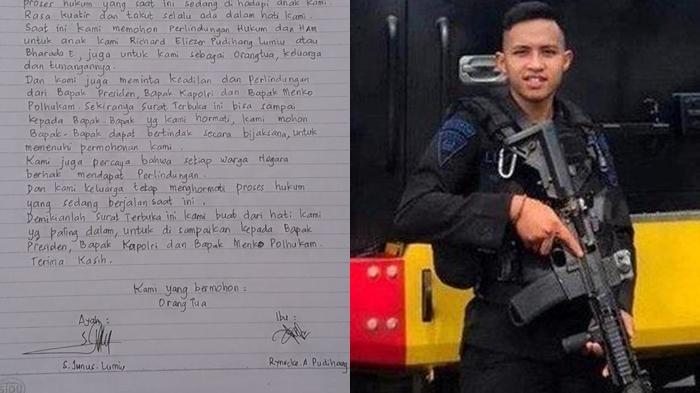 proses hukum yang saat ini sedang di hadapi anak kami.
Rasa kuatir dan takut selalu ada dalam hati kami.
Saat ini kami memohon Perlindungan Hukum dan HAM
untuk anak kami Richard Eliezer Pudihang Lumiu atau
Bharada E, juga untuk kami sebagai Orangtua, keluarga
dan tunangannya.
Dan kami juga meminta keadilan dan Perlindungan
dari Bapak Presiden, Bapak Kapolri dan Bapak Menko
Polhukam. Sekiranya Surat Terbuka ini bisa sampai
kepada Bapak-Bapak yg kami hormati, kami mohon
Bapak-Bapak dapat bertindak secara bijaksana, untuk
memenuhi permohonan kami.
Kami juga percaya bahwa setiap Warga Negara
berhak mendapat Perlindungan.
Dan kami keluarga tetap menghormati proses hukum
yang sedang berjalan saat ini.
Demikianlah Surat Terbuka ini kami buat dari hati kami
yg paling dalam, untuk di sampaikan kepada Bapak
Presiden, Bapak Kapolri dan Bapak Menko Polhukam.
Terima Kasih.
Kami yang bermohon:
Orang Tua
Ayah: Ibu:
S. Junus. Lumiu Rynecke. A. Pudihang